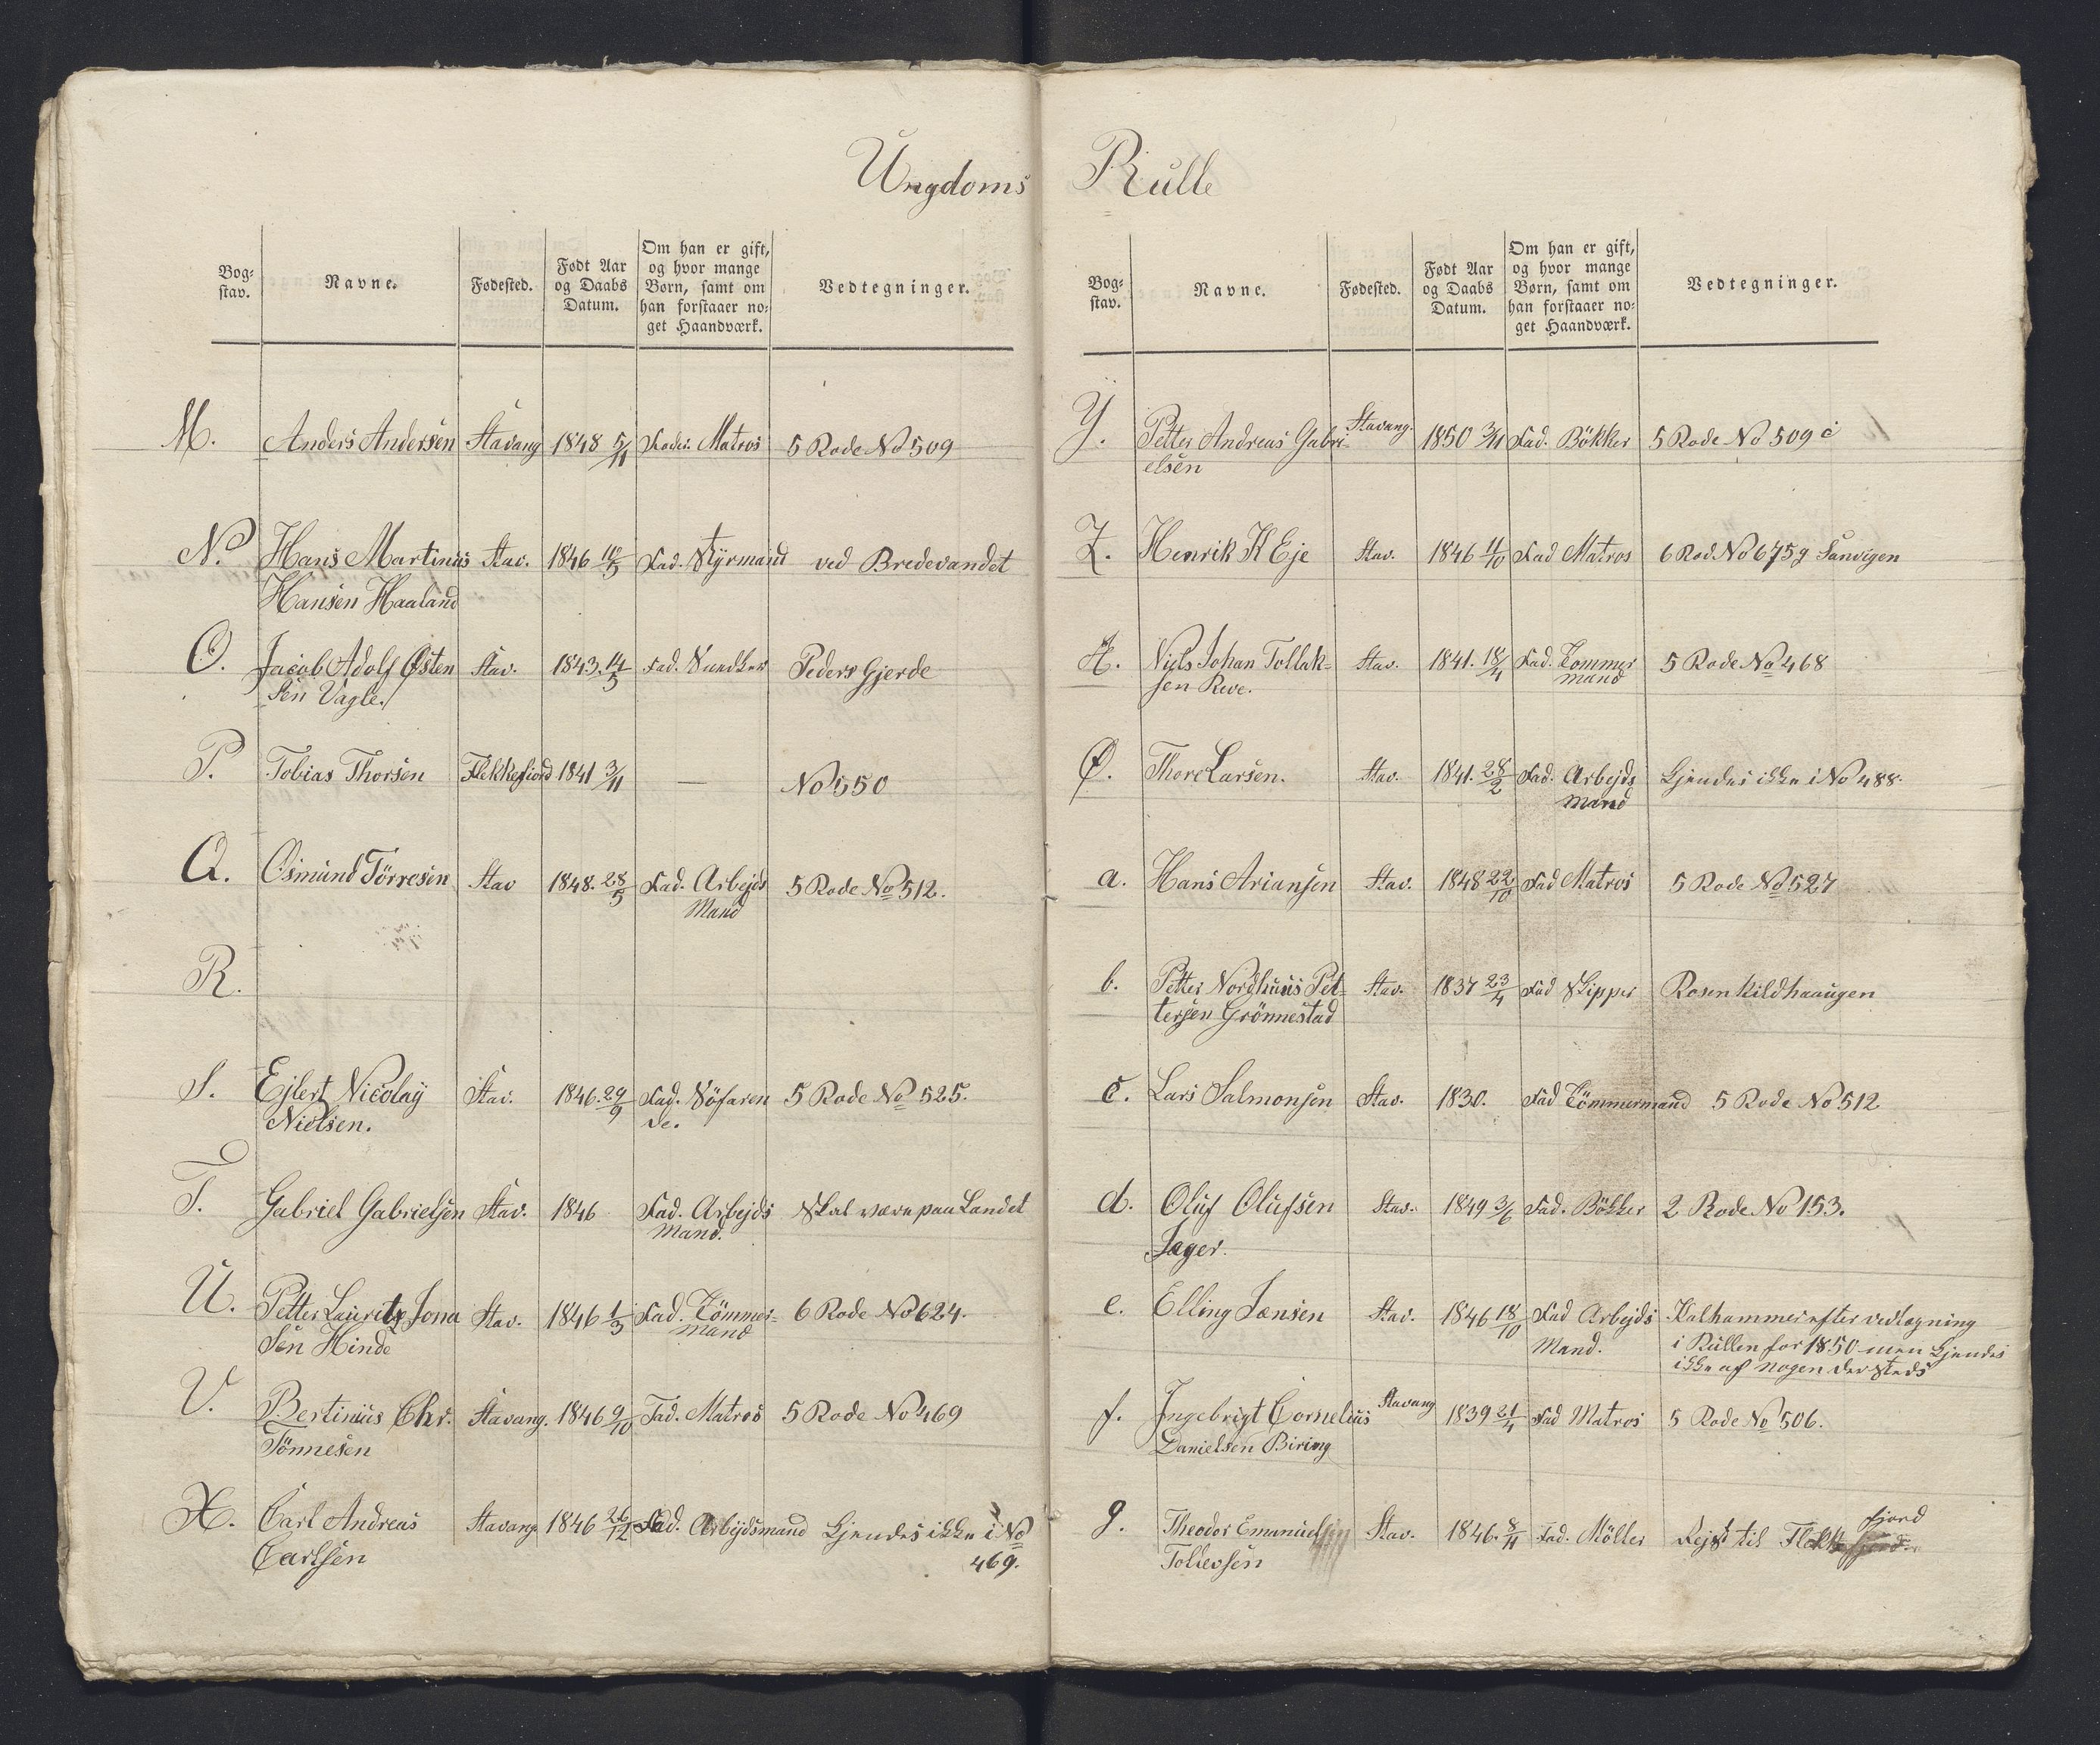 Ungdoms Rulle
Bog-
stav.
Navne.
Fødested.
Født Aar
og Daabs
Datum.
Om han er gift,
og hvor mange
Børn, samt om
han forstaaer no-
get Haandværk.
Vedtegninger.
M. Anders Andersen Stavang 1848 5/11 Fader. Matros 5 Rode No 509
N. Hans Martinus Stav. 1846 /5 Fad. Styrmand ved Bredevandet
Hansen Haaland
O. Jacob Adolf Østen Stav. 1843. 14/5 Fad. Peders Gjerde
sen Vagle.
P. Tobias Thorsen Flekkefiord 1841 3/11 — No 550
Q. Osmund Törresen Stav 1848. 28/5 Fad. Arbejds 5 Rode No 512.
Mand
R.
S. Ejlert Nicolaÿ Stav. 1846. 29/9 Fad. Söfaren 5 Rode No 525.
Nielsen. de.
T. Gabriel Gabrielsen Stav. 1846 Fad. Arbejds Skal være paa Landet
Mand.
U. Petter Lauritz Jona Stav. 1846 1/3 Fad. Tömmer- 6 Rode No 624.
sen Hinde mand
V. Bertinius Chr. Stavang. 1846 9/10 Fad. Matros 5 Rode No 469
Tönnesen
X. Carl Andreas Stavang. 1846 26/12 Fad. Arbejdsmand Kjendes ikke i No
Carlsen 469.
Bog-
stav.
Navne.
Fødested.
Født Aar
og Daabs
Datum.
Om han er gift,
og hvor mange
Børn, samt om
han forstaaer no-
get Haandværk.
Vedtegninger.
Y. Petter Andreas Gabri- Stavang. 1850 3/11 Fad. Bökker 5 Rode No 509 c
elsen
Z. Henrik K Eje Stav. 1846 11/10 Fad Matros 6 Rod. No 675g Sanvigen
Æ. Niels Johan Tollak- Stav. 1841. 18/4 Fad. Tommer 5 Rode No 468
sen Reve. mand
Ø. Thore Larsen. Stav. 1841. 28/2 Fad. Arbejds Kjendes ikke i No 488.
mand
a. Hans Ariansen Stav. 1848 22/10 Fad Matros 5 Rode No 527
b. Petter Nordhuus Pet- Stav. 1837 23/4 Fad Skipper Rosenkildhaaugen
tersen Grönnestad
c. Lars Salmonsen Stav. 1830. Fad Tömmermand 5 Rode No 512
d. Oluf Olufsen Stav. 1849 3/6 Fad. Bökker 2 Rode No 153.
Jager.
e. Elling Jansen Stav. 1846 18/10 Fad Arbejds Kalhammer efter vedtegning
Mand. i Rullen for 1850 men Kjendes
ikke af nogen dersteds
f. Ingebrigt Cornelius Stavang 1839 21/4 Fad Matros 5 Rode No 506.
Danielsen Biring
g. Theodor Emanuel Stav. 1846. 8/11 Fad. Möller Rejst til Flekke fjord
Tollevsen